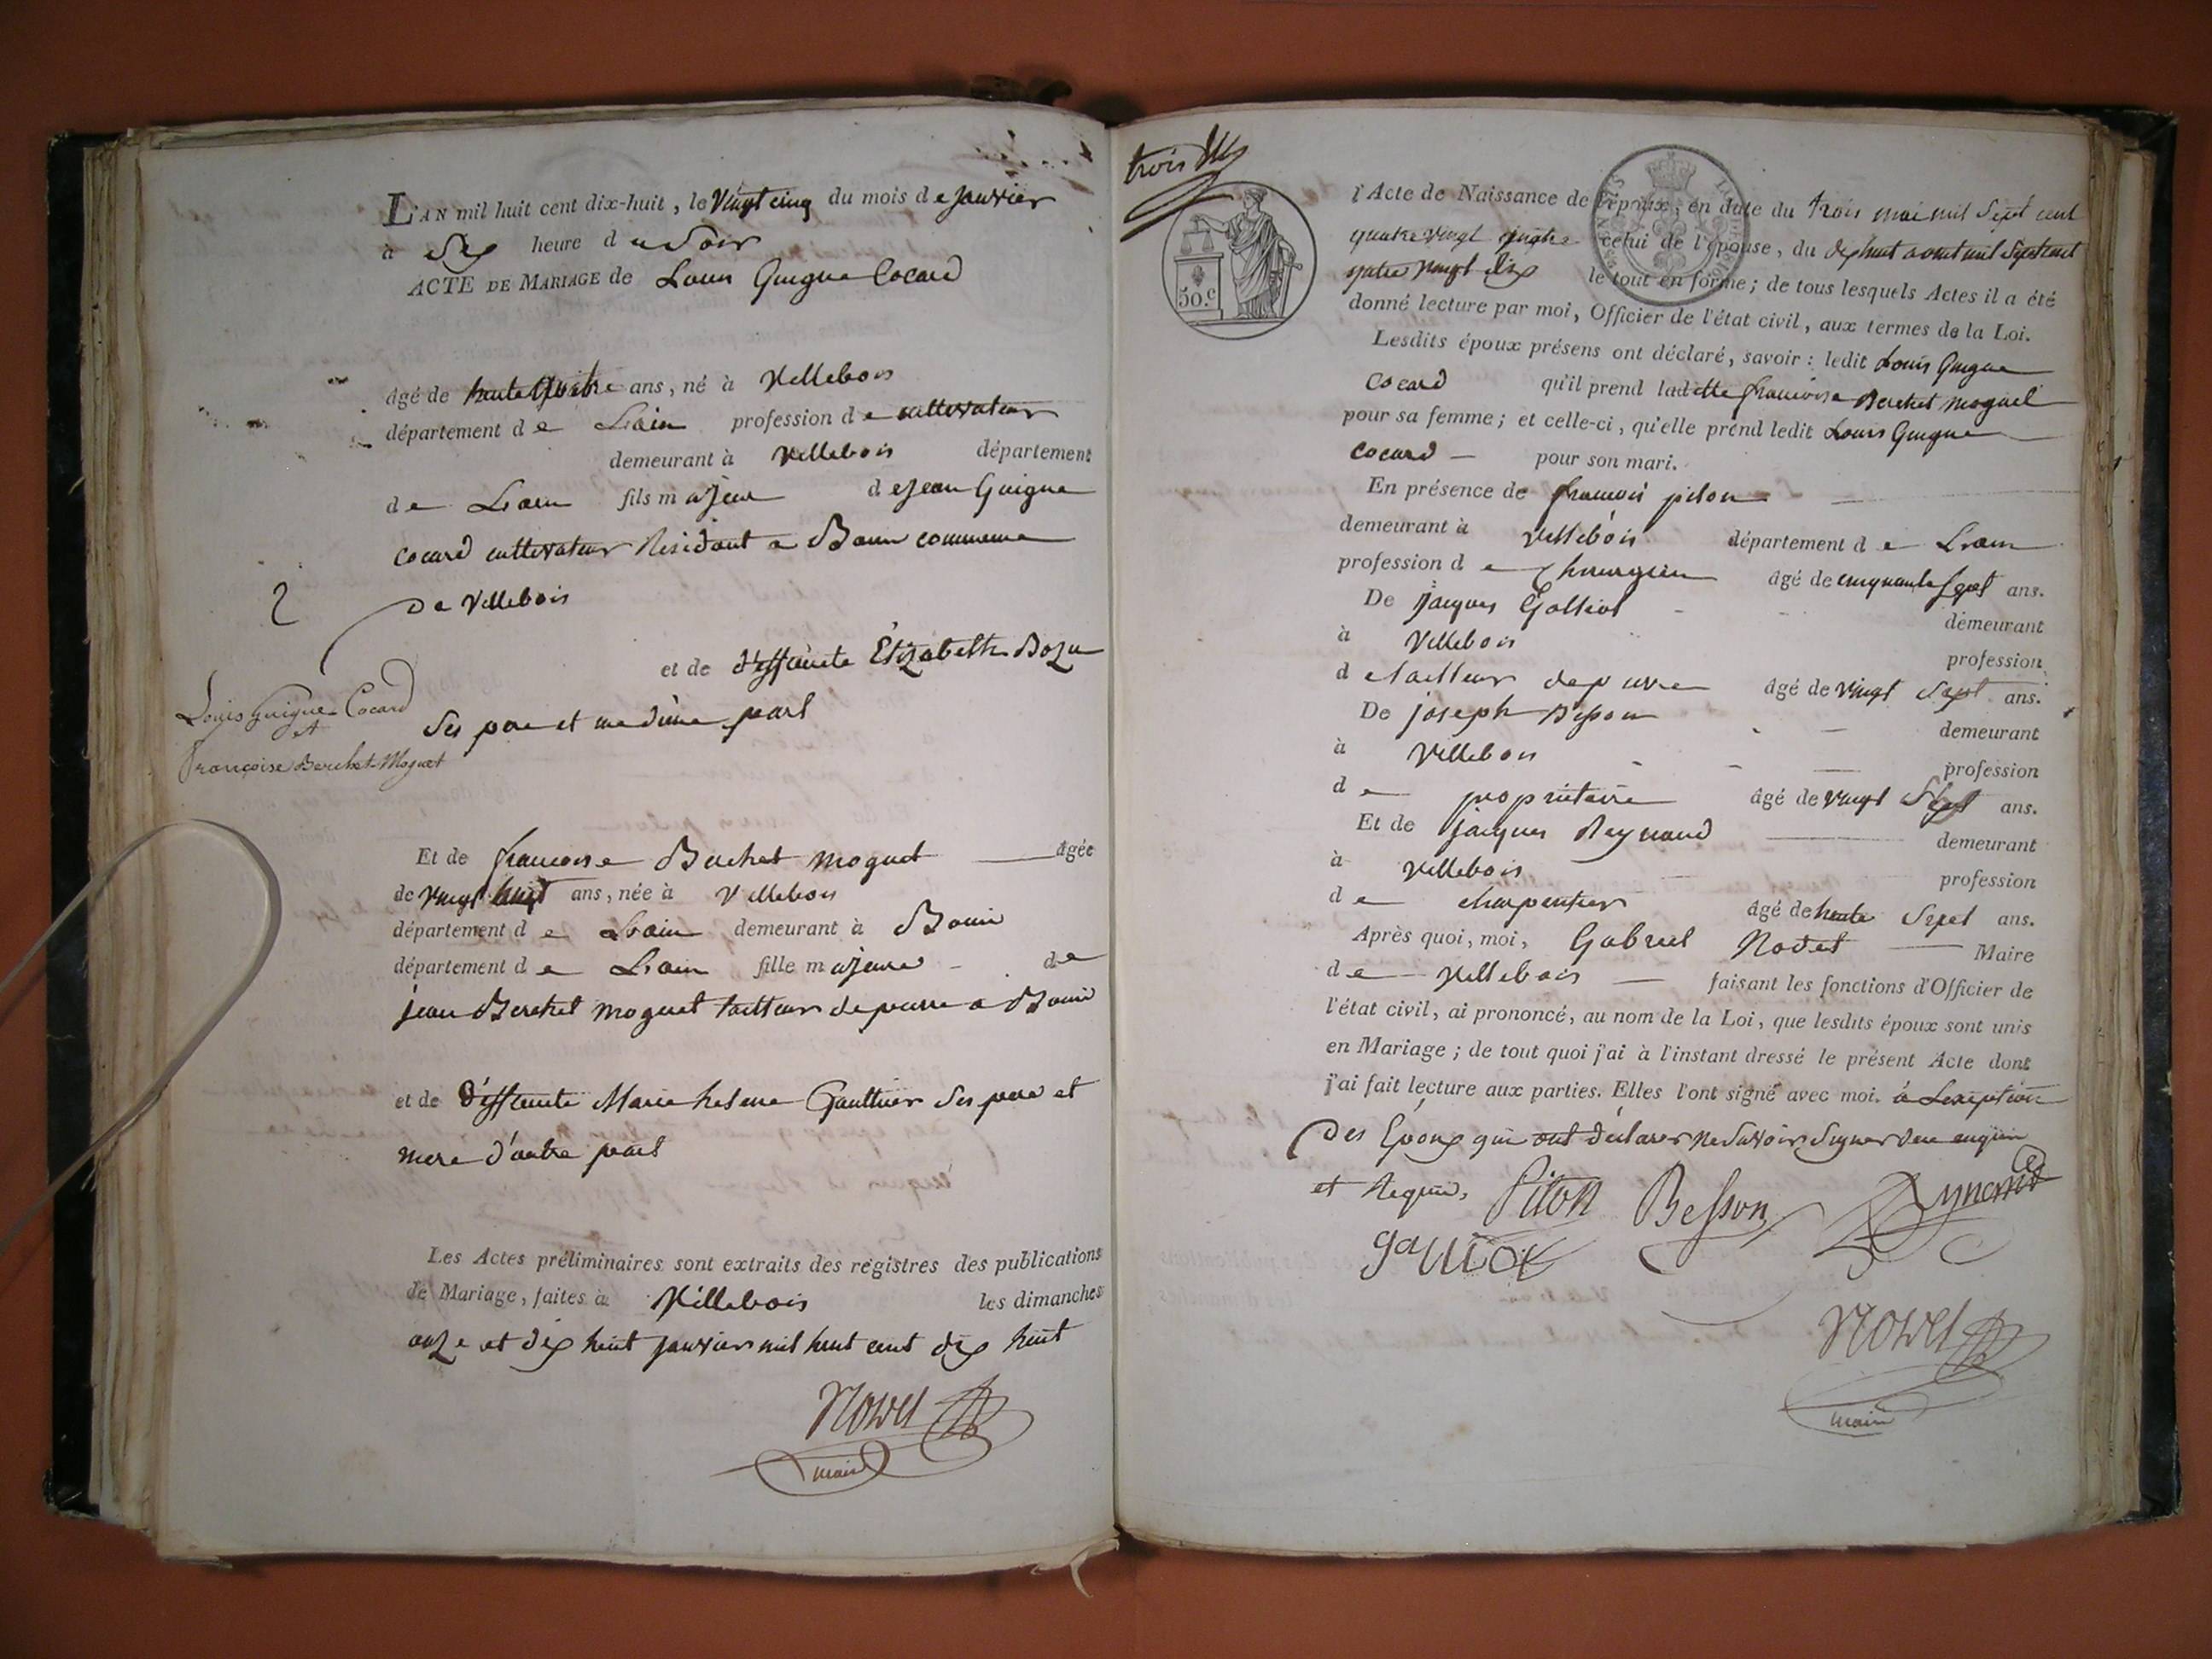 L'AN mil huit cent dix-huit, le Vingt cinq du mois de janvier
à Six heure du Soir
ACTE DE MARIAGE de Louis Guigue Cocard
âgé de trente quatre ans, né à Villebois
département de Lain profession de cultivateur
demeurant à Villebois département
de Lain fils majeur de jean Guigue
Cocard cultivateur Residant a Bouis commune
De Villebois
et de deffuncte Elizabeth Bozu
Ses pere et mere d'une part
2
Louis Guigue-Cocard
et
Françoise Berchet-Moguet
Et de francoise Berchet moguet âgée
de vingt huit ans, née à Villebois
département de Lain demeurant à Bouis
département de Lain fille majeure de
jean Berchet moguet tailleur de pierre a Bouis
et de Deffuncte Marie helene Gauthier Ses pere et
mere d'autre part
Les Actes préliminaires sont extraits des régistres des publications
de Mariage, faites à Villebois les dimanches
onze et dix huit janvier mil huit cent dix huit
Nodet
maire
trois
50.c
l'Acte de Naissance de l'époux, en date du trois mai mil Sept cent
quatre vingt quatre celui de l'épouse, du dix huit aout mil Sept cent
quatre vingt dix le tout en forme; de tous lesquels Actes il a été
donné lecture par moi, Officier de l'état civil, aux termes de la Loi.
Lesdits époux présens ont déclaré, savoir: ledit Louis Guigue
Cocard qu'il prend ladette francoise Berchet moguet
pour sa femme; et celle-ci, qu'elle prend ledit Louis Guigue
Cocard pour son mari.
En présence de francois piton
demeurant à Villebois département de Lain
profession de Chirurgien âgé de cinquante Sept ans.
De jacques Galliot demeurant
à Villebois profession
de tailleur de pierre âgé de vingt Sept ans.
De joseph Besson demeurant
à Villebois profession
de proprietaire âgé de vingt Sept ans.
Et de jacques Reynaud demeurant
à Villebois profession
de charpentier âgé de trente Sept ans.
Après quoi, moi, Gabriel Nodet Maire
de Villebois faisant les fonctions d'Officier de
l'état civil, ai prononcé, au nom de la Loi, que lesdits époux sont unis
en Mariage; de tout quoi j'ai à l'instant dressé le présent Acte dont
j'ai fait lecture aux parties. Elles l'ont signé avec moi. a Lexeption
des Epoux qui ont declarer ne Savoir Signer de ce enquis
et Requis.
Piton Besson Reynaud
galliot
Nodet
maire